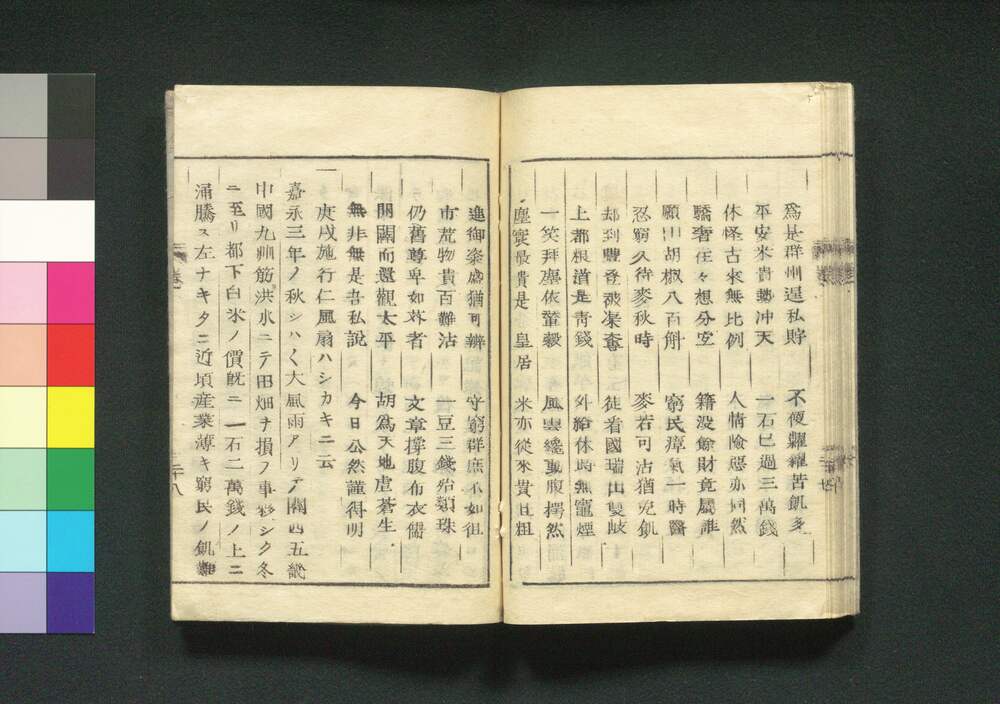 為是群州運私貯　不便糶糴苦飢多
平安米貴勢冲天　一石已過三萬錢
休怪古來無比例　人情險惡亦同然
驕奢往々想分空　籍没餘財竟屬誰
願出胡椒八百斛　窮民瘴氣一時醫
忍窮久待麥秋時　麥若可沽猶免飢
却到豐登被渠奪　徒看國瑞出雙岐
上都根道是青錢　外給休時無竈煙
一笑拜塵依輦轂　風雲纔動腹枵然
塵寰最貴是　皇居　米亦從來貴且粗
進御粢盛猶可辨　守窮群庶不如徂
市荒物貴百難沽　一豆三錢殆類珠
仍舊尊卑如奕者　文章撐腹布衣儒
開闢而還觀太平　胡為天地虐蒼生
無非無是吾私說　今日公然謹得明
一　庚戌施行仁風扇ハシカキニ云
嘉永三年ノ秋シハ〱大風雨アリテ關西五畿
中國九州筋洪水ニテ田畑ヲ損フ事夥シク冬
ニ至リ都下白米ノ價既ニ一石二萬錢ノ上ニ
涌騰ス左ナキタニ近頃産業薄キ窮民ノ飢難
二十八